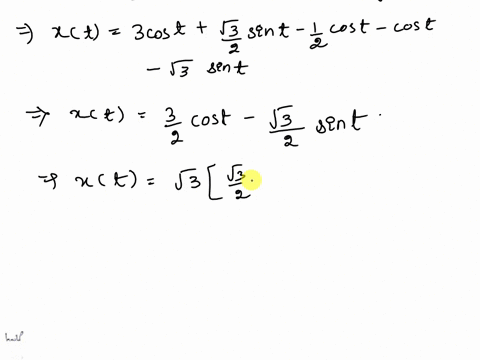 ⇒ x(t) = 3cost + √3/2 sint - 1/2 cost - cost
- √3 sint
⇒ x(t) = 3/2 cost - √3/2 sint .
⇒ x(t) = √3 [ √3/2 .